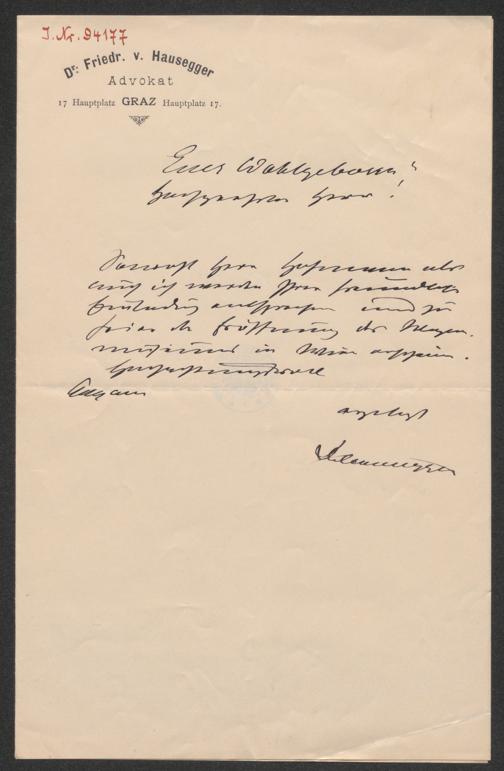 J. Nr. 94177
Dr. Friedr. v. Hausegger
Advokat
17 Hauptplatz GRAZ Hauptplatz 17.
Euer Wohlgeboren!
Hochgeehrter Herr!
Sowohl Herr Hofmann als
auch ich werden Ihrer freundlichen
Einladung entsprechen und zur
Feier der Eröffnung des Wagner
museums in Wien erscheinen.
Hochachtungsvoll
ergebenst
Dr Hausegger